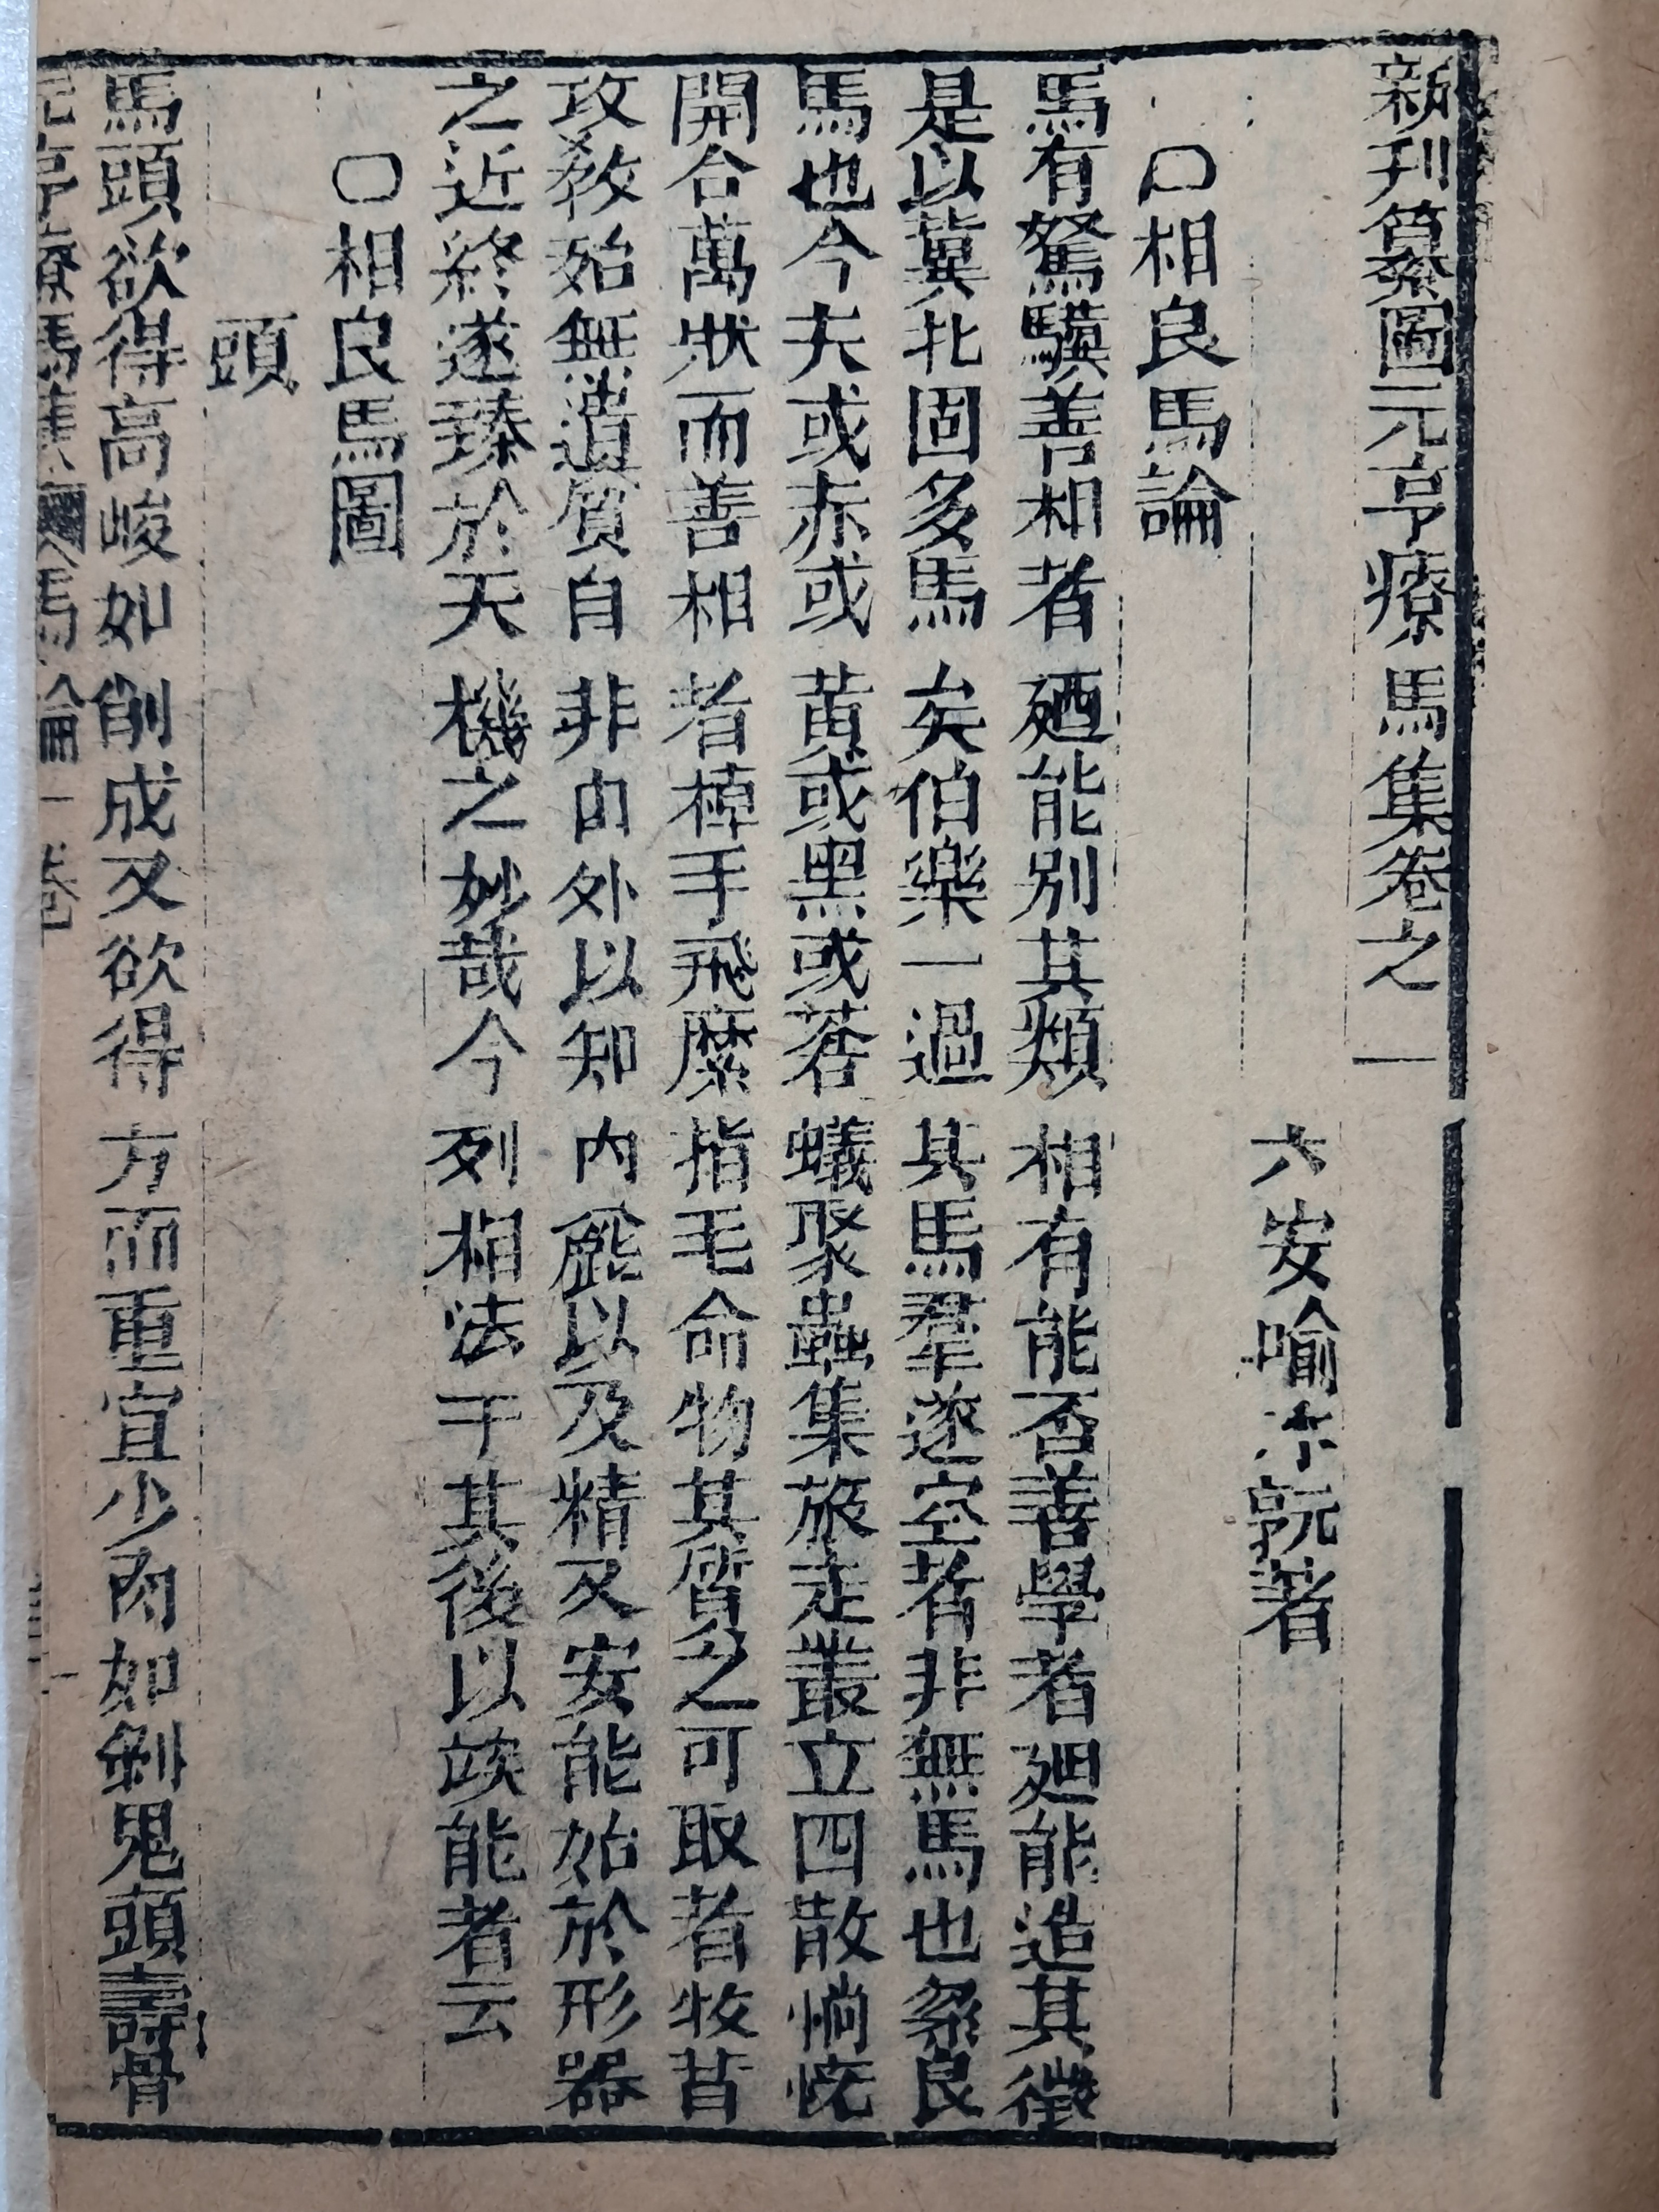 新刋纂圖元亨療馬集卷之一
六安喻本元著
〇相良馬論
馬有駑驥善相者廼能別其類相有能否善學者廼能造其徵
是以冀北固多馬矣伯樂一過其馬羣遂空者非無馬也無良
馬也今夫或赤或黃或黑或蒼蟻聚蟲集旅走叢立四散惝恍
開合萬狀而善相者棹手飛縻指毛命物其質之可取者牧芻
攻敎始無遺質自非由外以知内麄以及精又安能始於形器
之近終遂臻於天機之妙哉今列相法于其後以竢能者云
〇相良馬圖
頭
馬頭欲得高峻如削成又欲得方而重宜少肉如剝兔頭壽骨
元亨療馬集 馬論 一卷